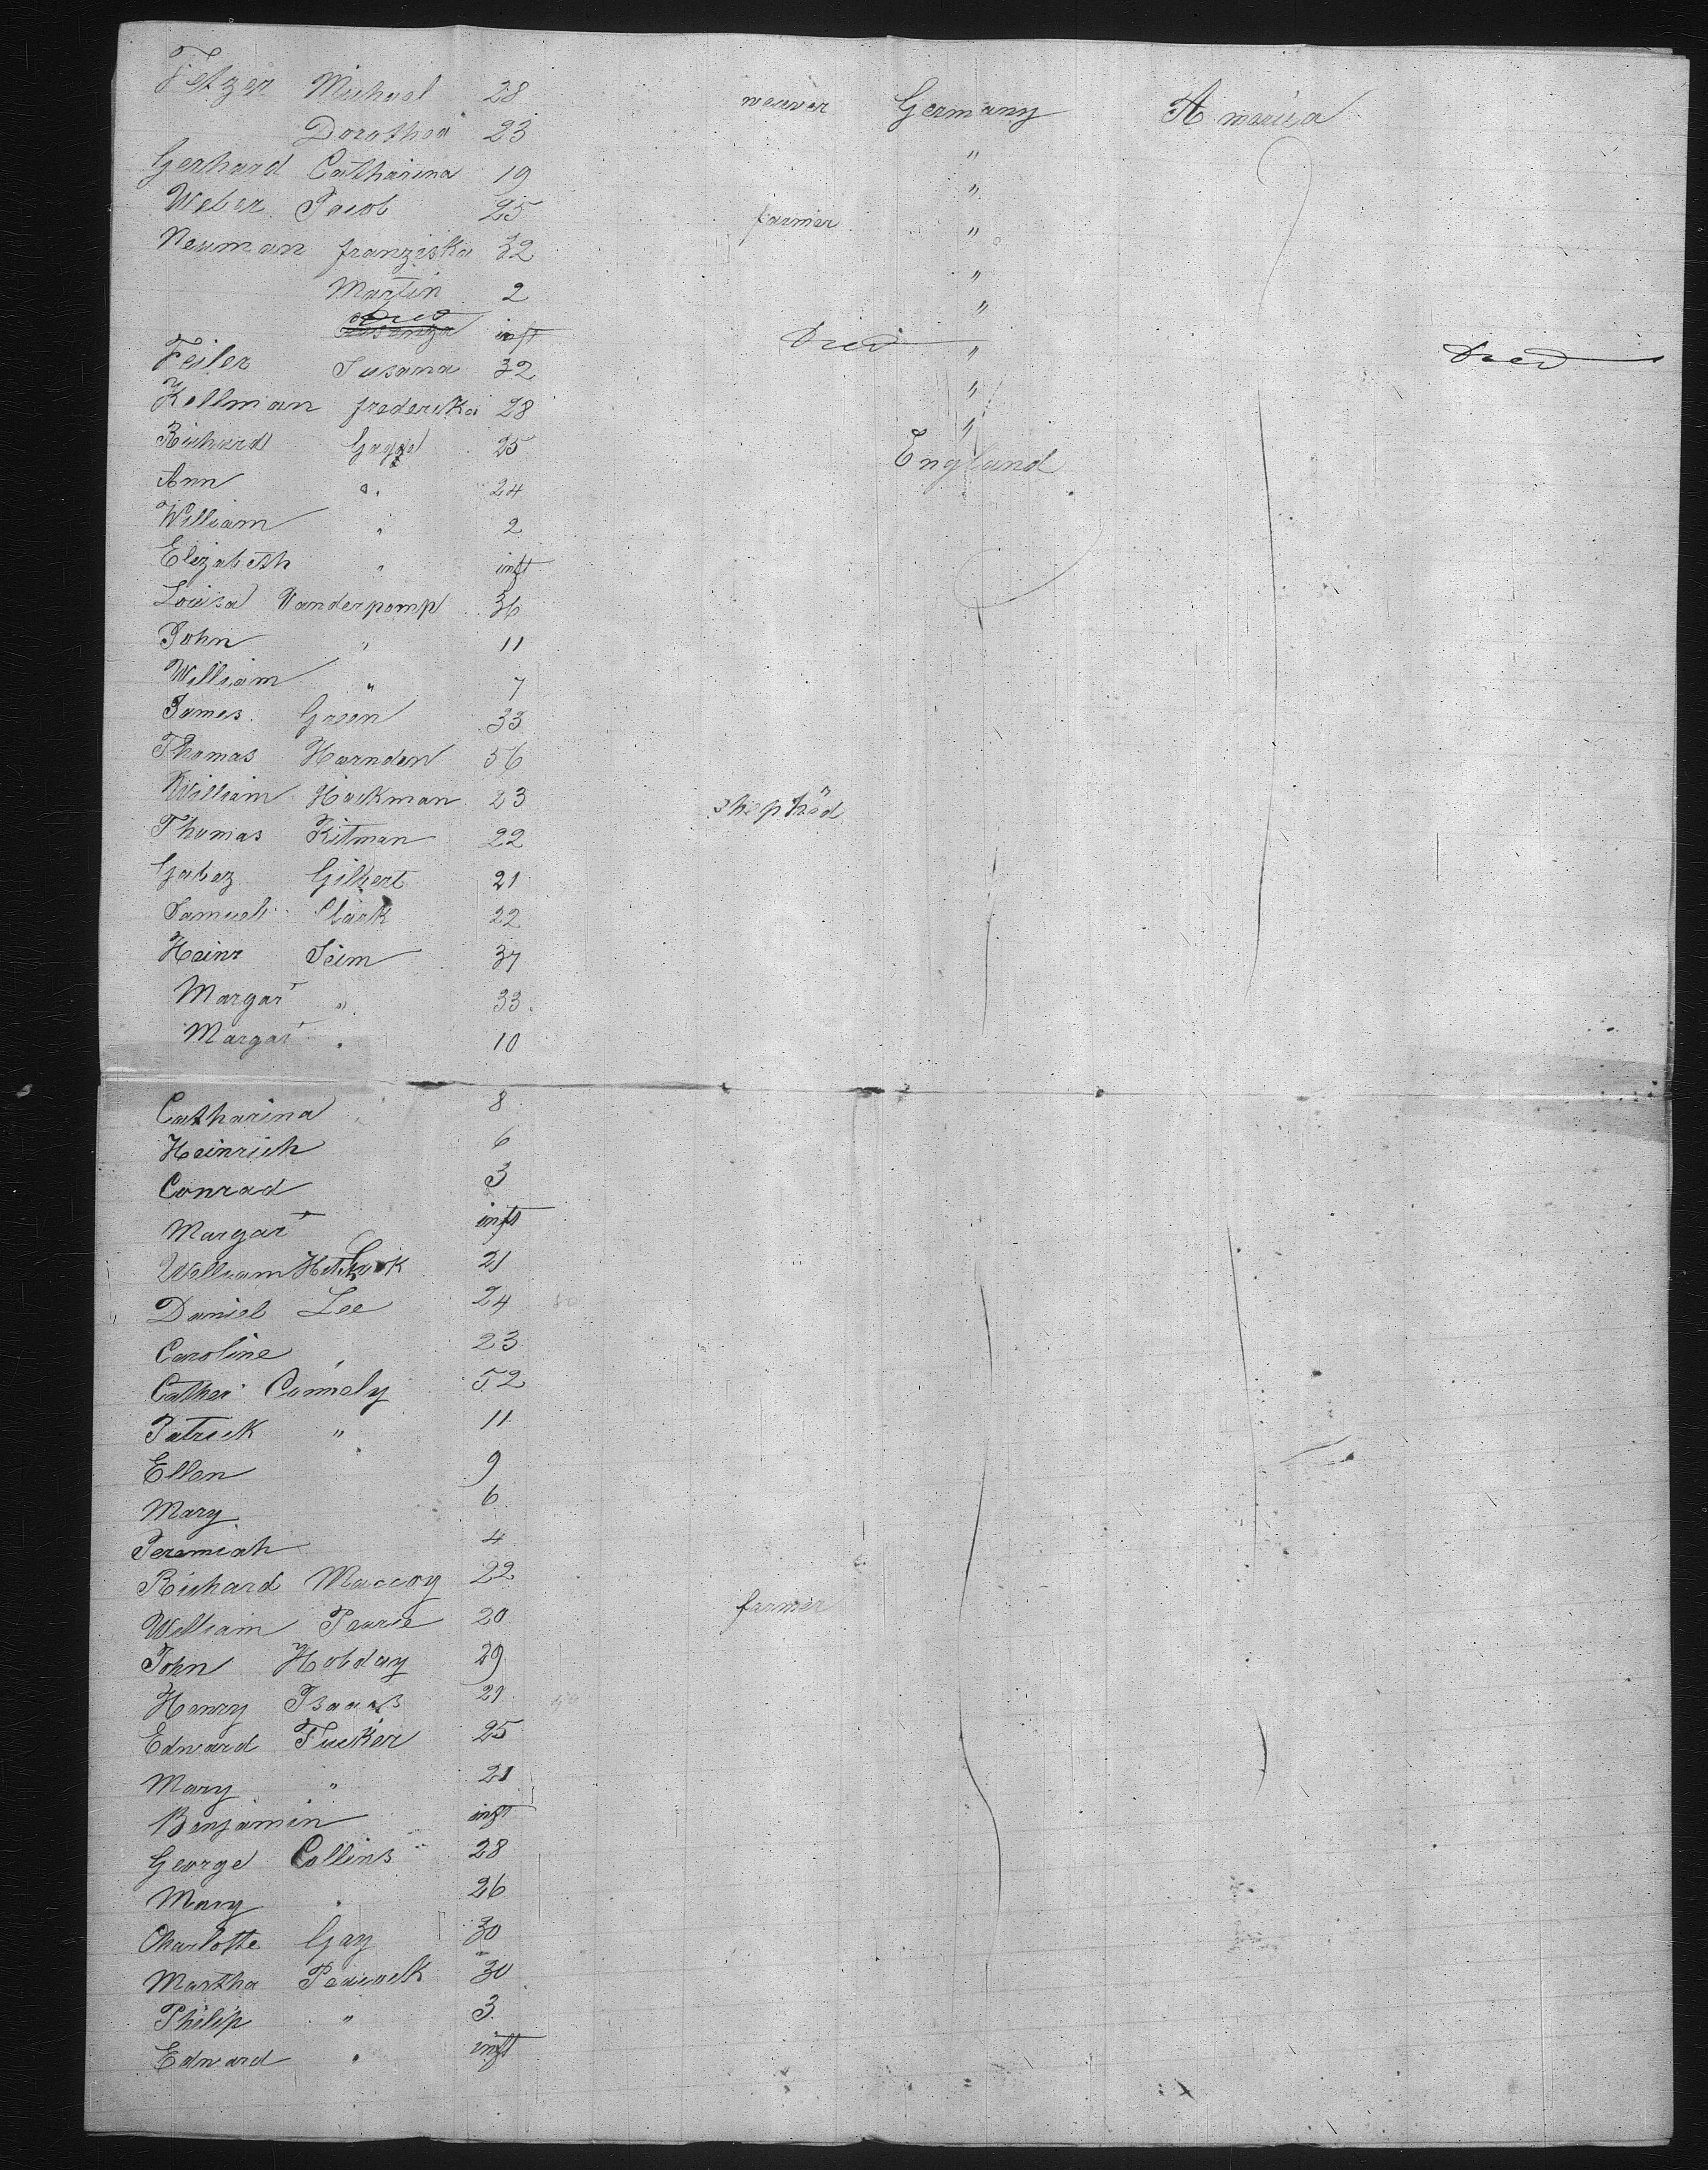 Fetzer Michael 28 weaver Germany America
Dorothea 23 "
Gerhard Catharina 19 "
Weber Jacob 25 farmer "
Neuman franziska 32 "
Martin 2 "
died inft Died " Died
Feiler Susana 32 "
Kellman frederika 28 "
Richard 25 England
Ann " 24
William " 2
Elizabeth " inft
Louisa Vanderpomp 36
John " 11
William " 7
James Green 33
Thomas Harnden 56
William Hackman 23
Thomas Kitman 22
Gabez Gilbert 21
Samuel Clark 22
Heinr Seim 37
Margar " 33
Margar " 10
Catharina 8
Heinrich 6
Conrad 3
Margar inft
William 21
Daniel Lee 24
Caroline " 23
Cather Connely 52
Patrick " 11
Ellen 9
Mary 6
Jeremiah 4
Richard Maccoy 22
William Pearce 20 farmer
John Hobday 29
Henry Isaacs 21
Edward Tucker 25
Mary " 21
Benjamin inft
George Collins 28
Mary " 26
Charlotte Gay 30
Martha Peacock 30
Philip " 3
Edward " inft